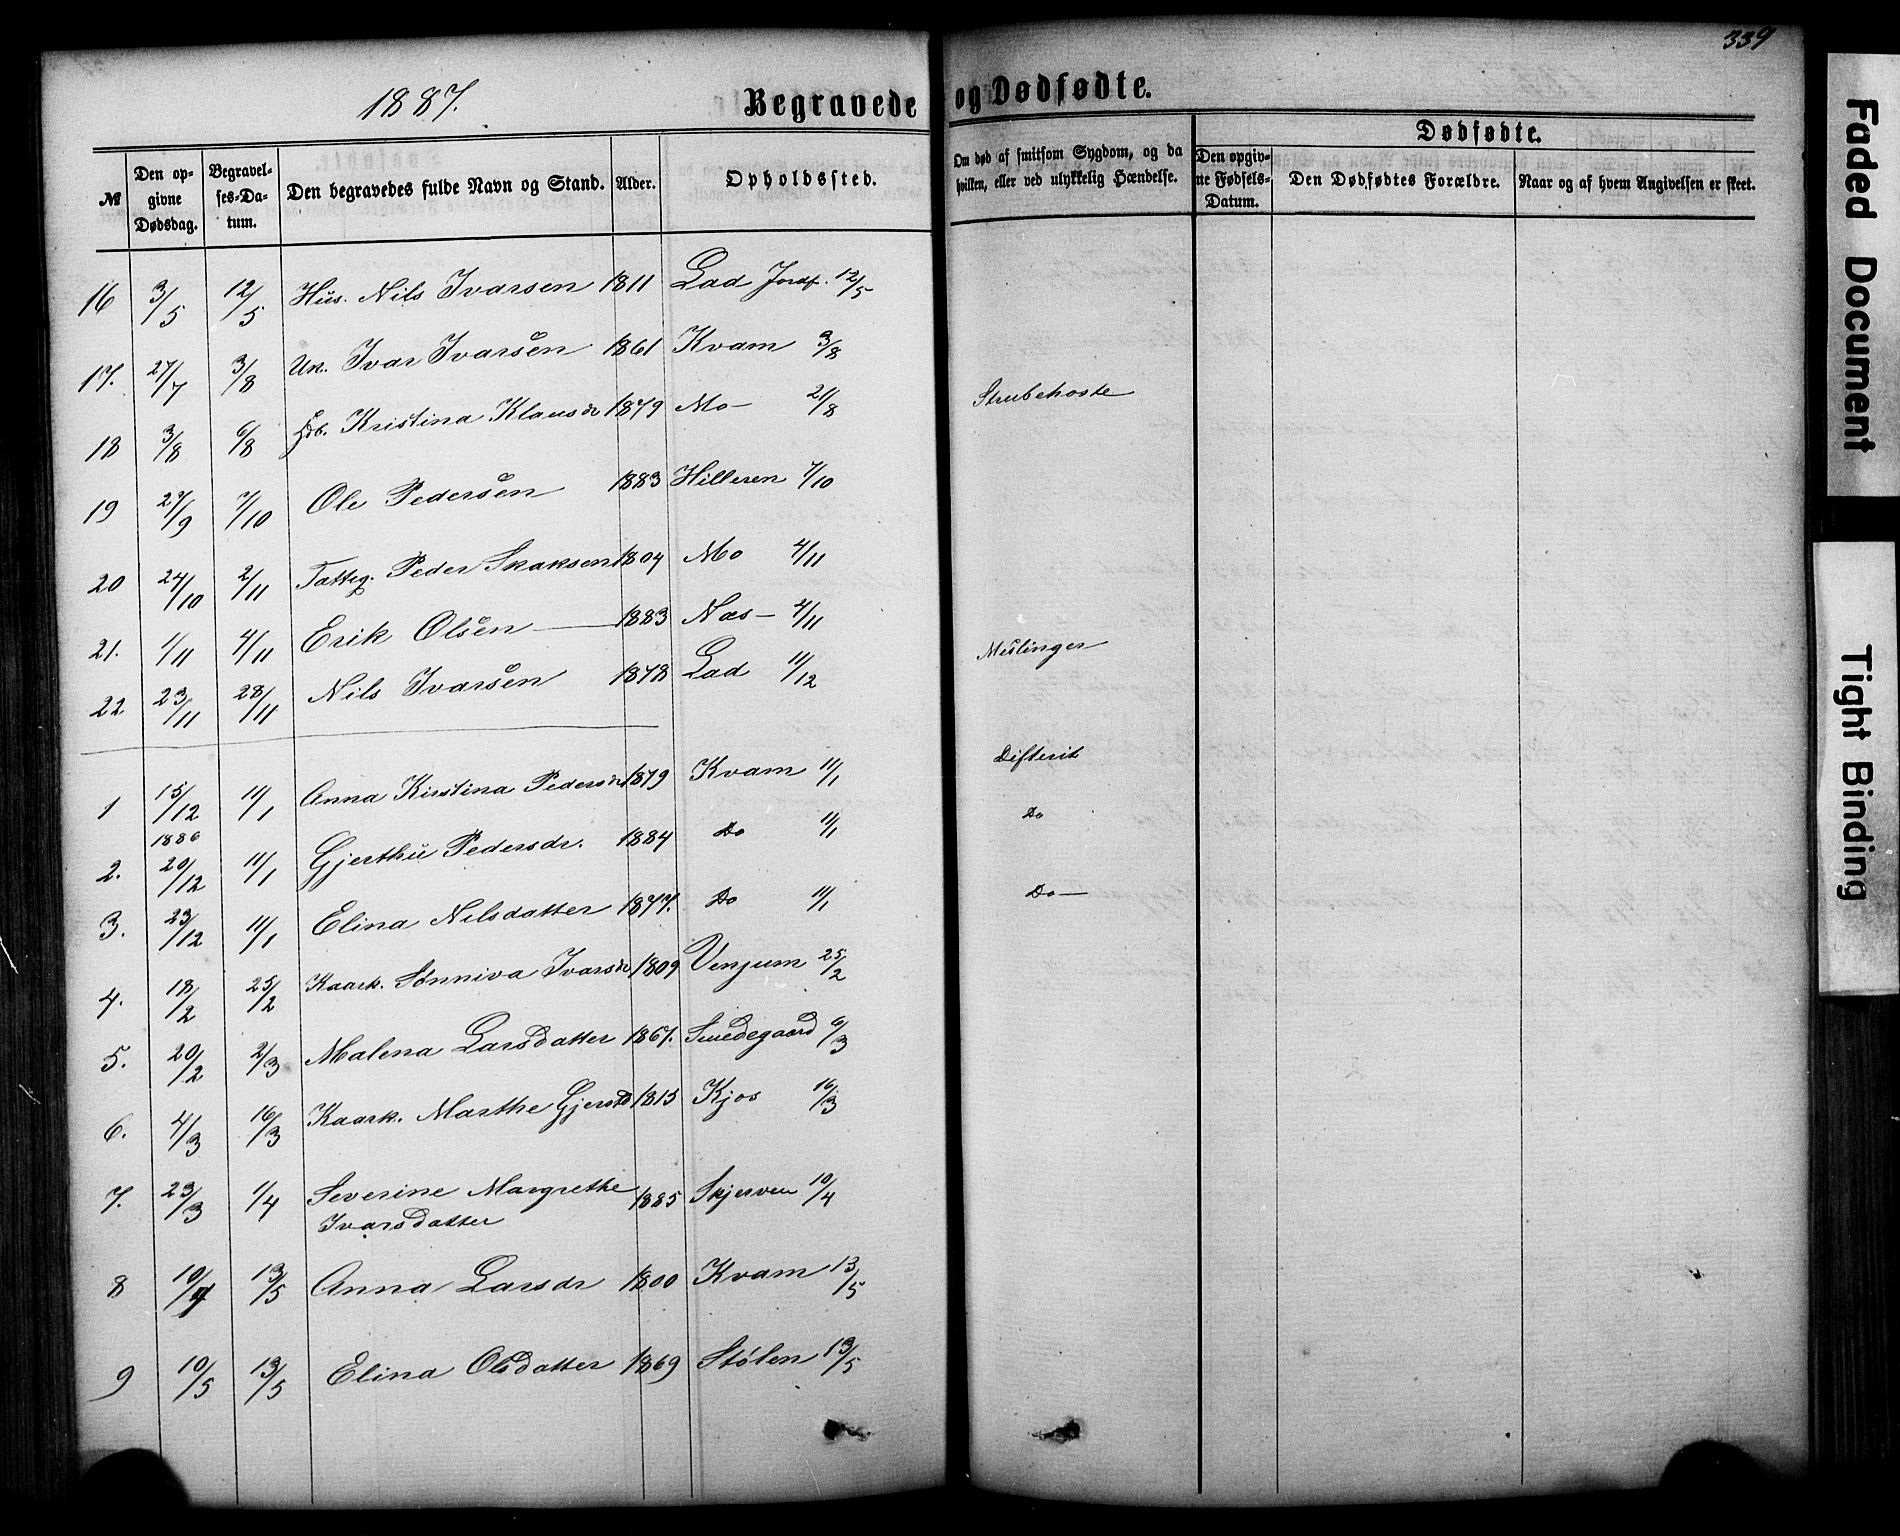 339
1887.
Begravede og Dødfødte.
№ Den opgivne Dødsdag. Begravelses-Datum. Den begravedes fulde Navn og Stand. Alder. Opholdssted. Om død af smitsom Sygdom, og da hvilken, eller ved ulykkelig Hændelse. Dødfødte. Den opgivne Fødsels-Datum. Den Dødfødtes Forældre. Naar og af hvem Angivelsen er skeet.
16 3/5 12/5 Hus. Nils Ivarsen 1811 Lad Jordf. 12/5
17. 27/7 3/8 Un. Ivar Ivarsen 1861 Kvam 3/8
18 3/8 6/8 Kristina Klausdr 1879 Mo 21/8 Strubehoste
19 27/9 7/10 Ole Pedersen 1883 Hilleren 7/10
20 24/10 2/11 Fattig. Peder Isaksen 1804 Mo 4/11
21. 1/11 4/11 Erik Olsen 1883 Næs 4/11
22 23/11 28/11 Nils Ivarsen 1878 Lad 11/12 Meslinger
1 15/12 1886 11/1 Anna Kirstina Pedersdr 1879 Kvam 11/1 Difterit
2. 20/12 11/1 Gjerthu Pedersdr. 1884 Do 11/1 Do
3. 23/12 11/1 Elina Nilsdatter 1877. Do 11/1 Do
4. 18/2 25/2 Kaark. Sønniva Ivarsdr 1809 Venjum 25/2
5. 20/2 2/3 Malena Larsdatter 1867. Smedegaard 6/3
6. 4/3 16/3 Kaark. Marthe Gjersd 1815 Kjos 16/3
7. 23/3 1/4 Severine Margrethe 1885 Skjerven 10/4
Ivarsdatter
8 10/4 13/5 Anna Larsdr 1800 Kvam 13/5
9 10/5 13/5 Elina Olsdatter 1869 Stølen 13/5
Faded Document
Tight Binding